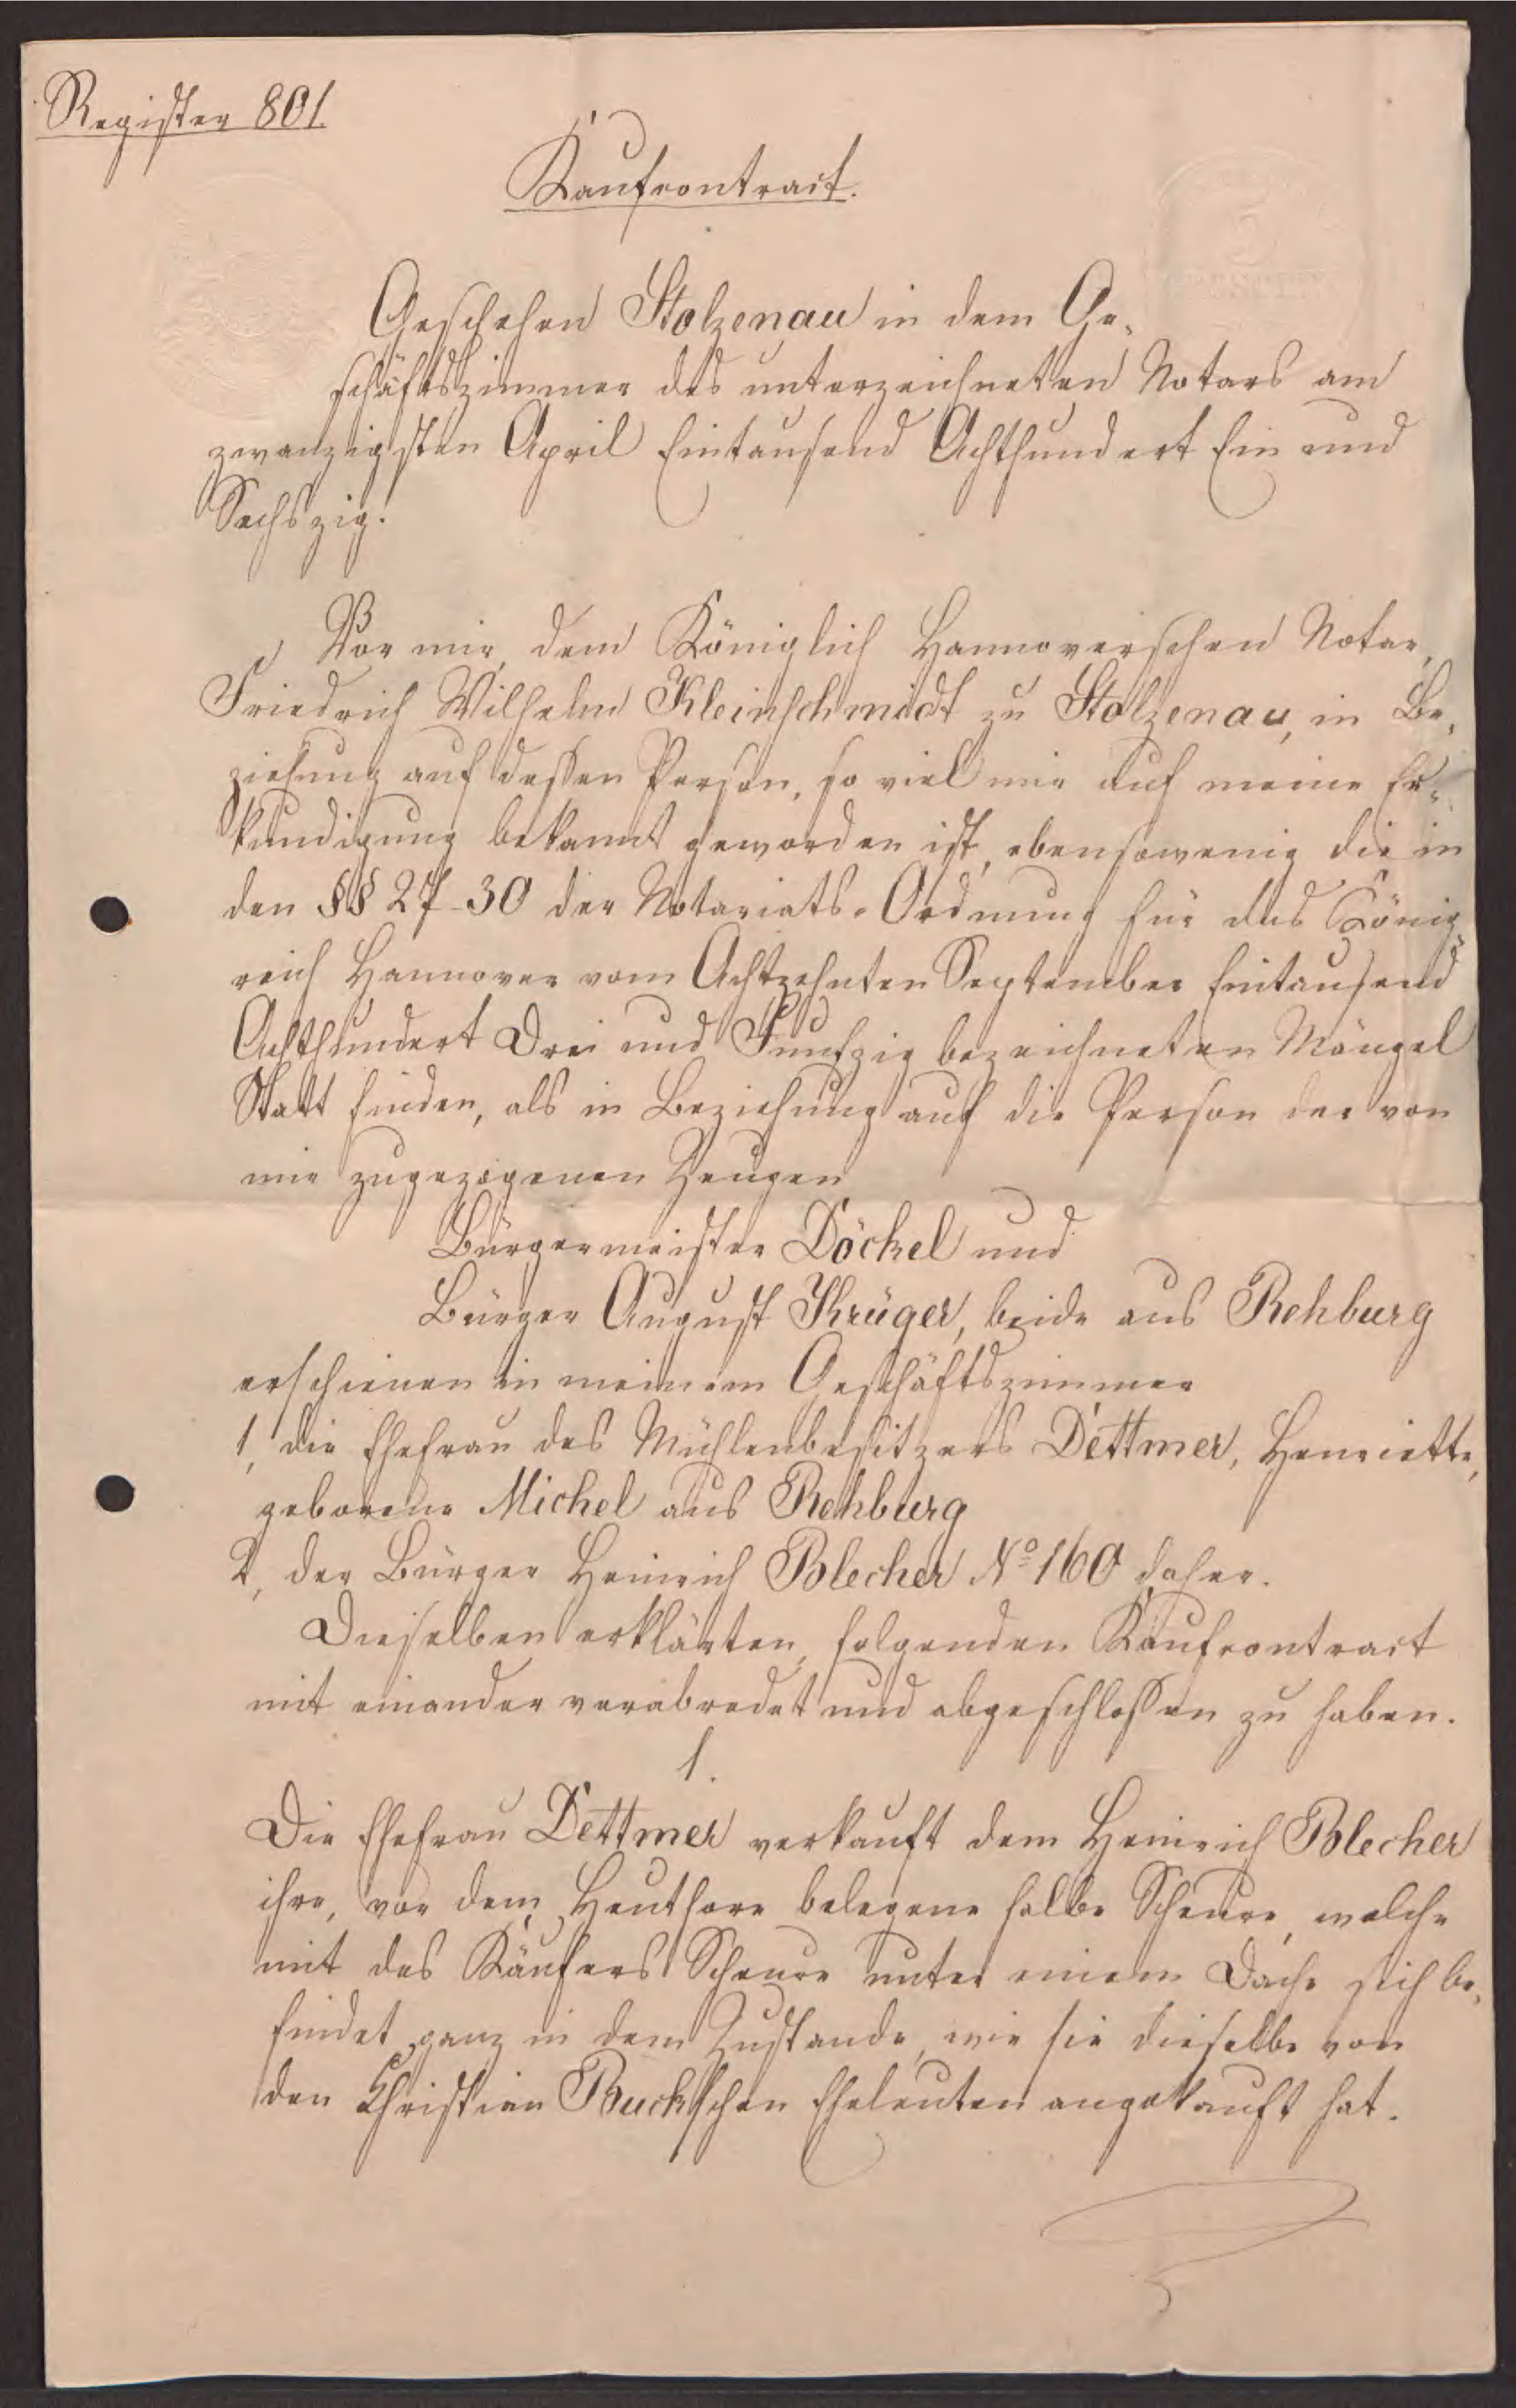 Register 801
Kaufcontract.
Geschehen Stolzenau in dem Ge-
schäftszimmer des unterzeichneten Notars am
zwanzigsten April Eintausend Achthundert Ein und
Sechszig.
Vor mir, dem Königlich Hannoverschen Notar,
Friedrich Wilhelm Kleinschmidt zu Stolzenau, in Be-
ziehung auf dessen Person, so viel mir auf meine Er-
kundigung bekannt geworden ist, ebensowenig die in
den §§ 27-30 der Notariats-Ordnung für das König-
reich Hannover vom Achtzehnten September Eintausend
Achthundert Drei und Funfzig bezeichneten Mängel
Statt finden, als in Beziehung auf die Person der von
mir zugezogenen Zeugen
Bürgermeister Döckel und
Bürger August Krüger, beide aus Rehburg
erschienen in meinem Geschäftszimmer
1, die Ehefrau des Mühlenbesitzers Dettmer, Henriette,
geborene Michel aus Rehburg
2, der Bürger Heinrich Polecher No 160 daher.
Dieselben erklärten, folgenden Kaufcontract
mit einander verabredet und abgeschlossen zu haben.
1.
Die Ehefrau Dettmer verkauft dem Heinrich Polecher
ihre, vor dem Heuthore belegene halbe Scheure, welche
mit des Käufers Scheure unter einem Dache sich be-
findet ganz in dem Zustande, wie sie dieselbe von
den Christian Buckschen Eheleuten angekauft hat.